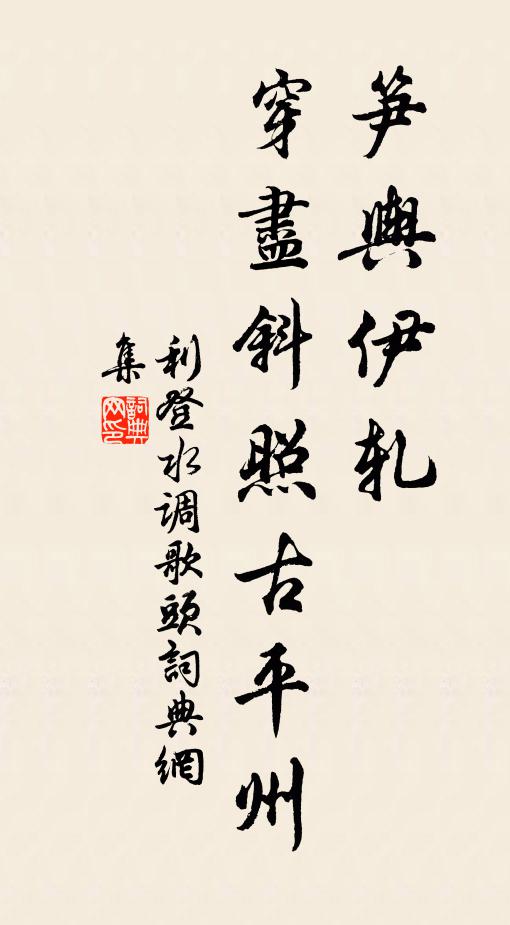 笋輿伊軋
穿盡斜照古平州
利登水调歌頭詞典網
集
詞典網印